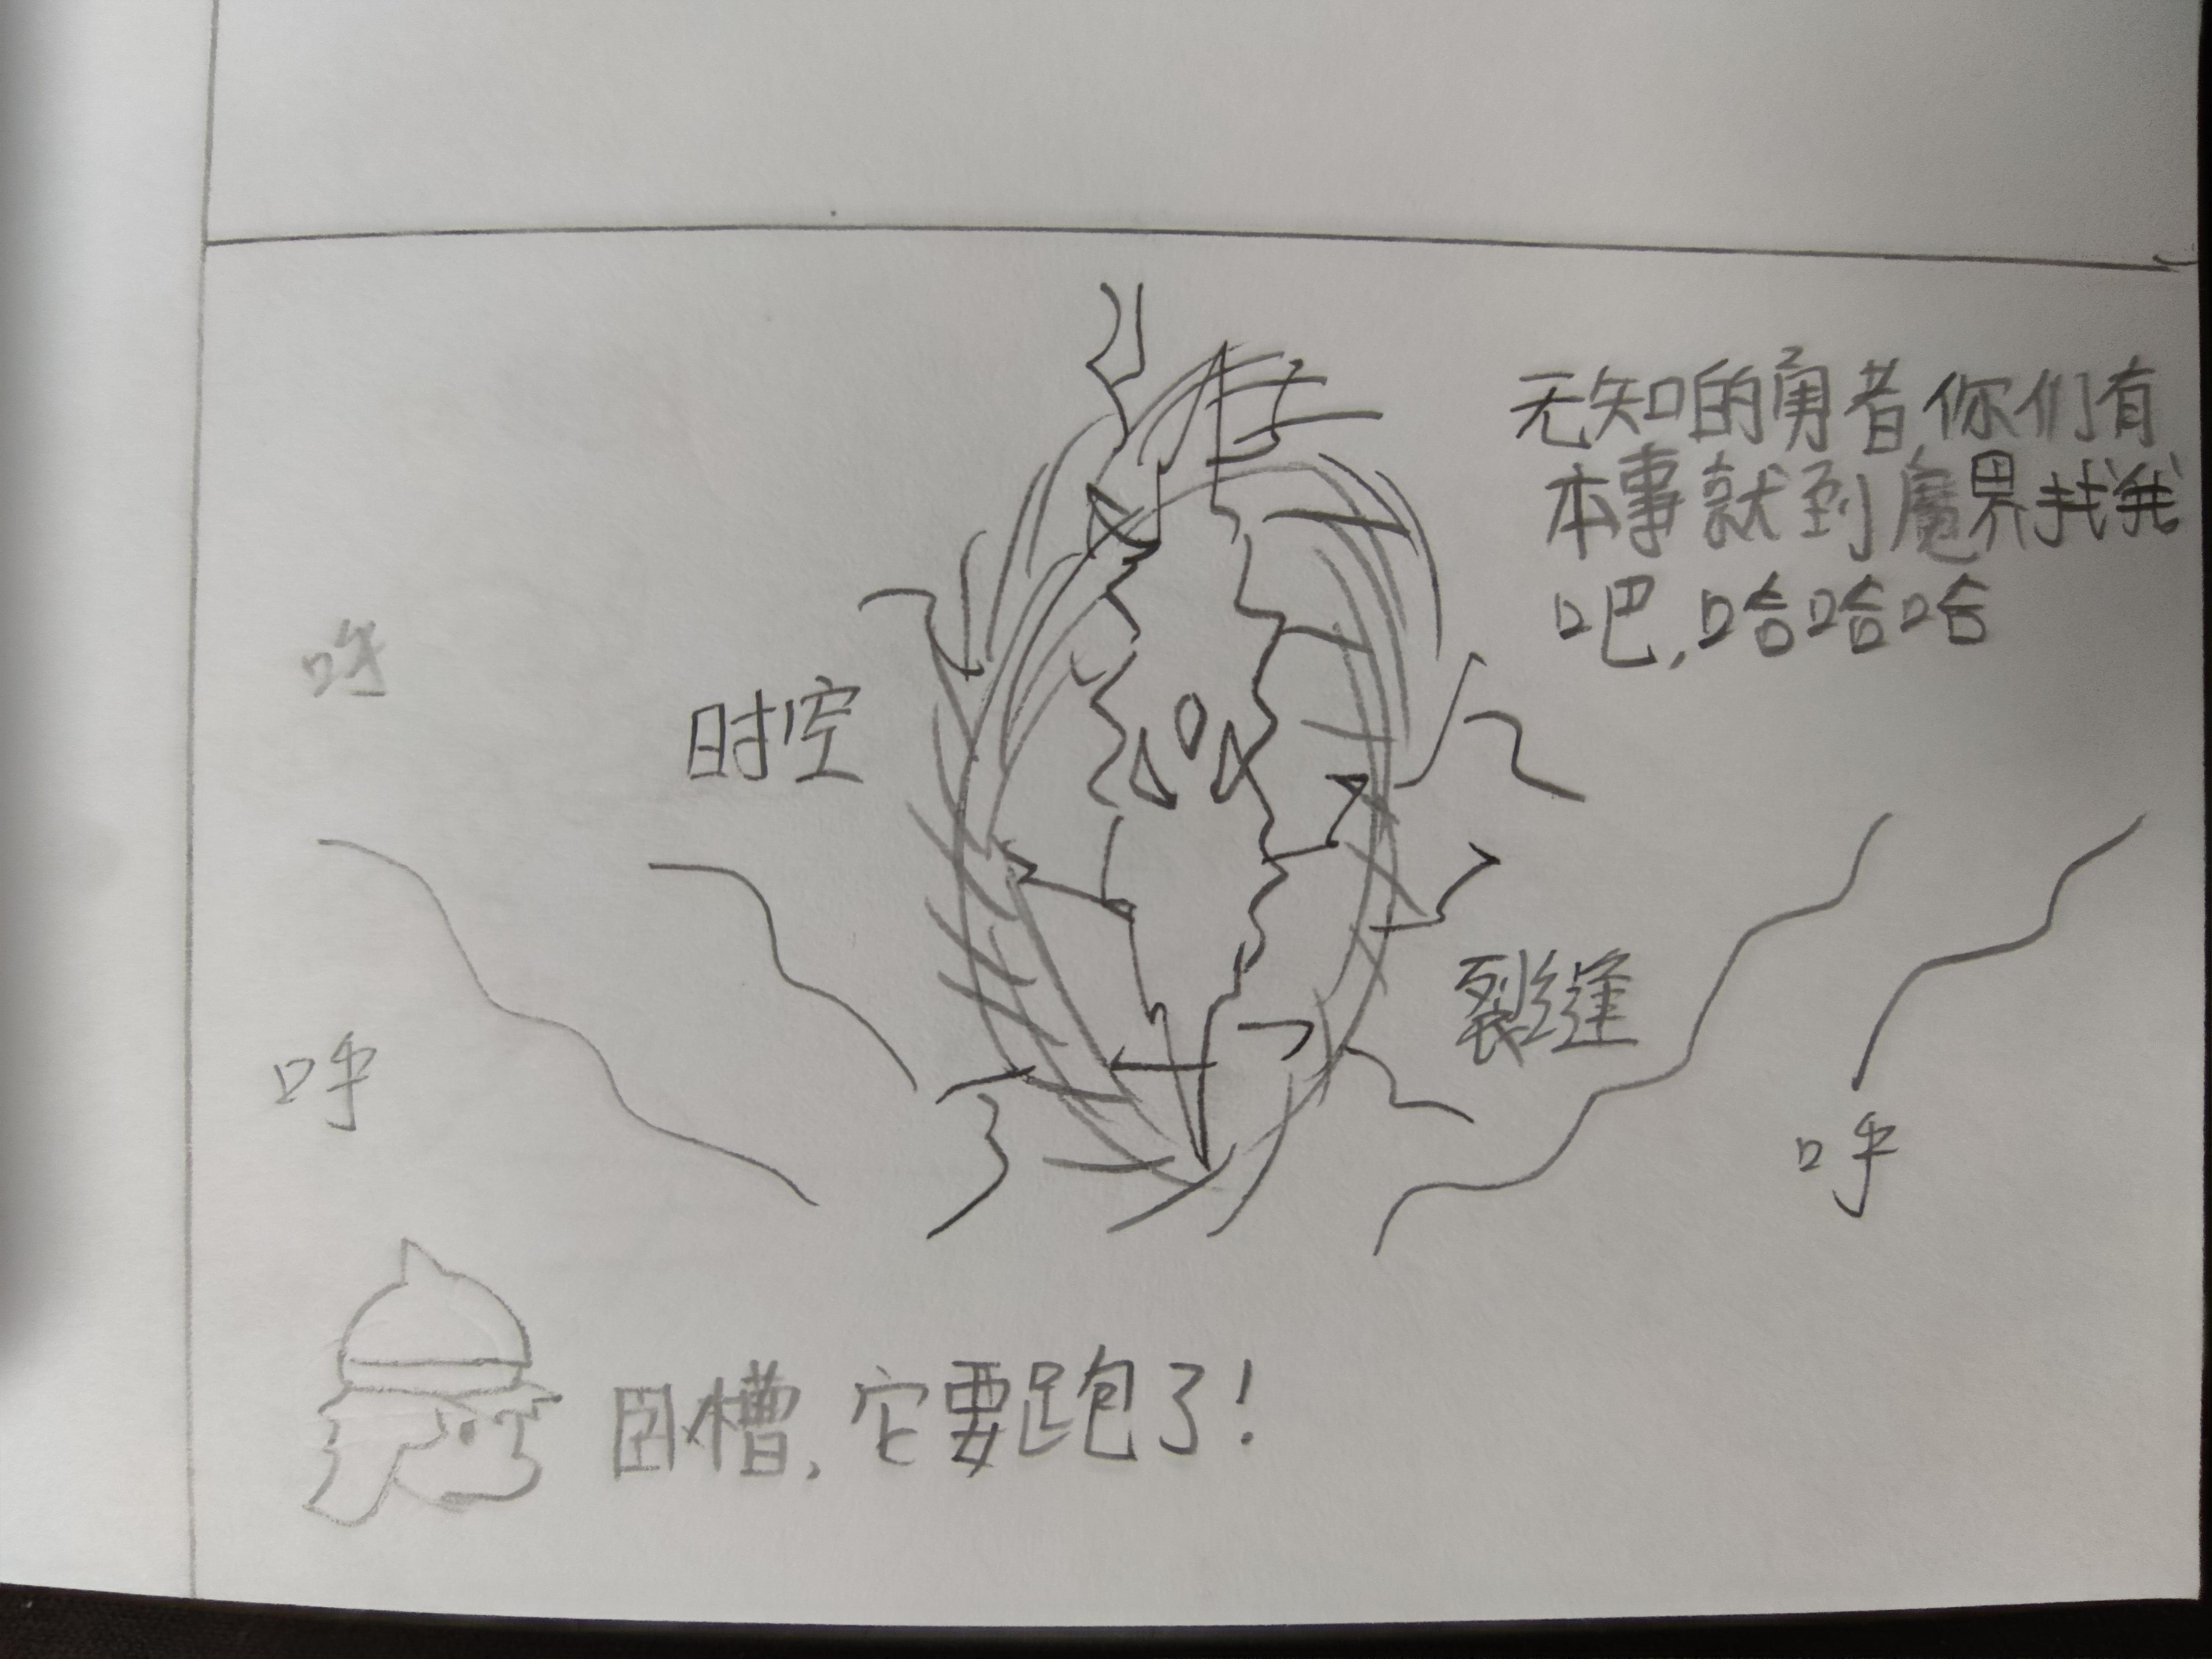 无知的勇者,你们有
本事就到魔界找我
吧,哈哈哈
呼
时空
裂缝
呼
呼
卧槽,它要跑了!